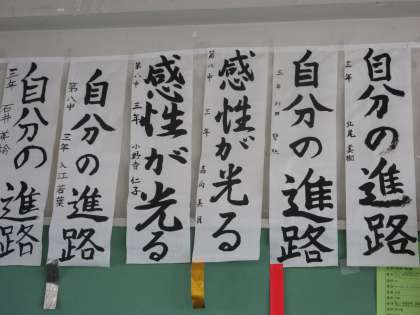 自分の進路
三年 北尾
自分の進路
三年
感性が光る
第八中 三年
感性が光る
第八中 三年 小野寺 仁子
自分の進路
第八中 三年 入江 若葉
自分の進路
三年 石井